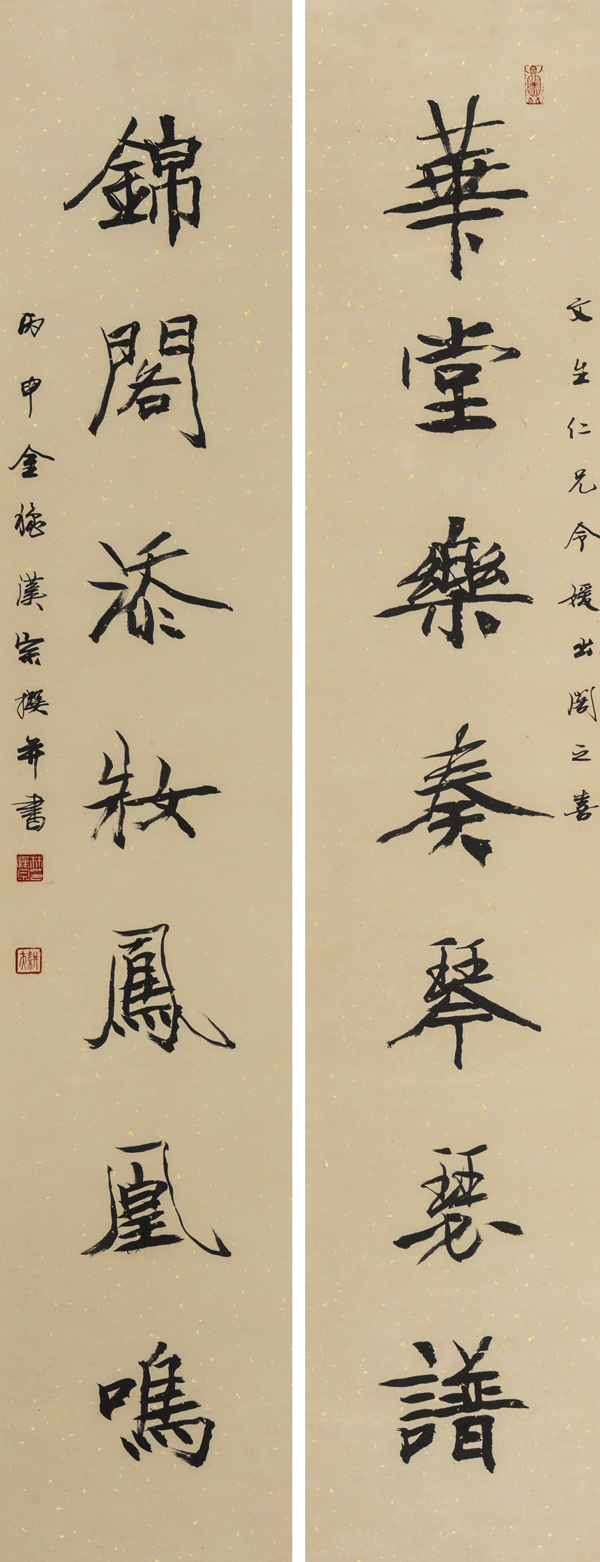 文生仁兄令媛出閣之喜
華堂樂奏琴瑟譜
錦閣添妝鳳凰鳴
丙申金秋漢宗撰并書